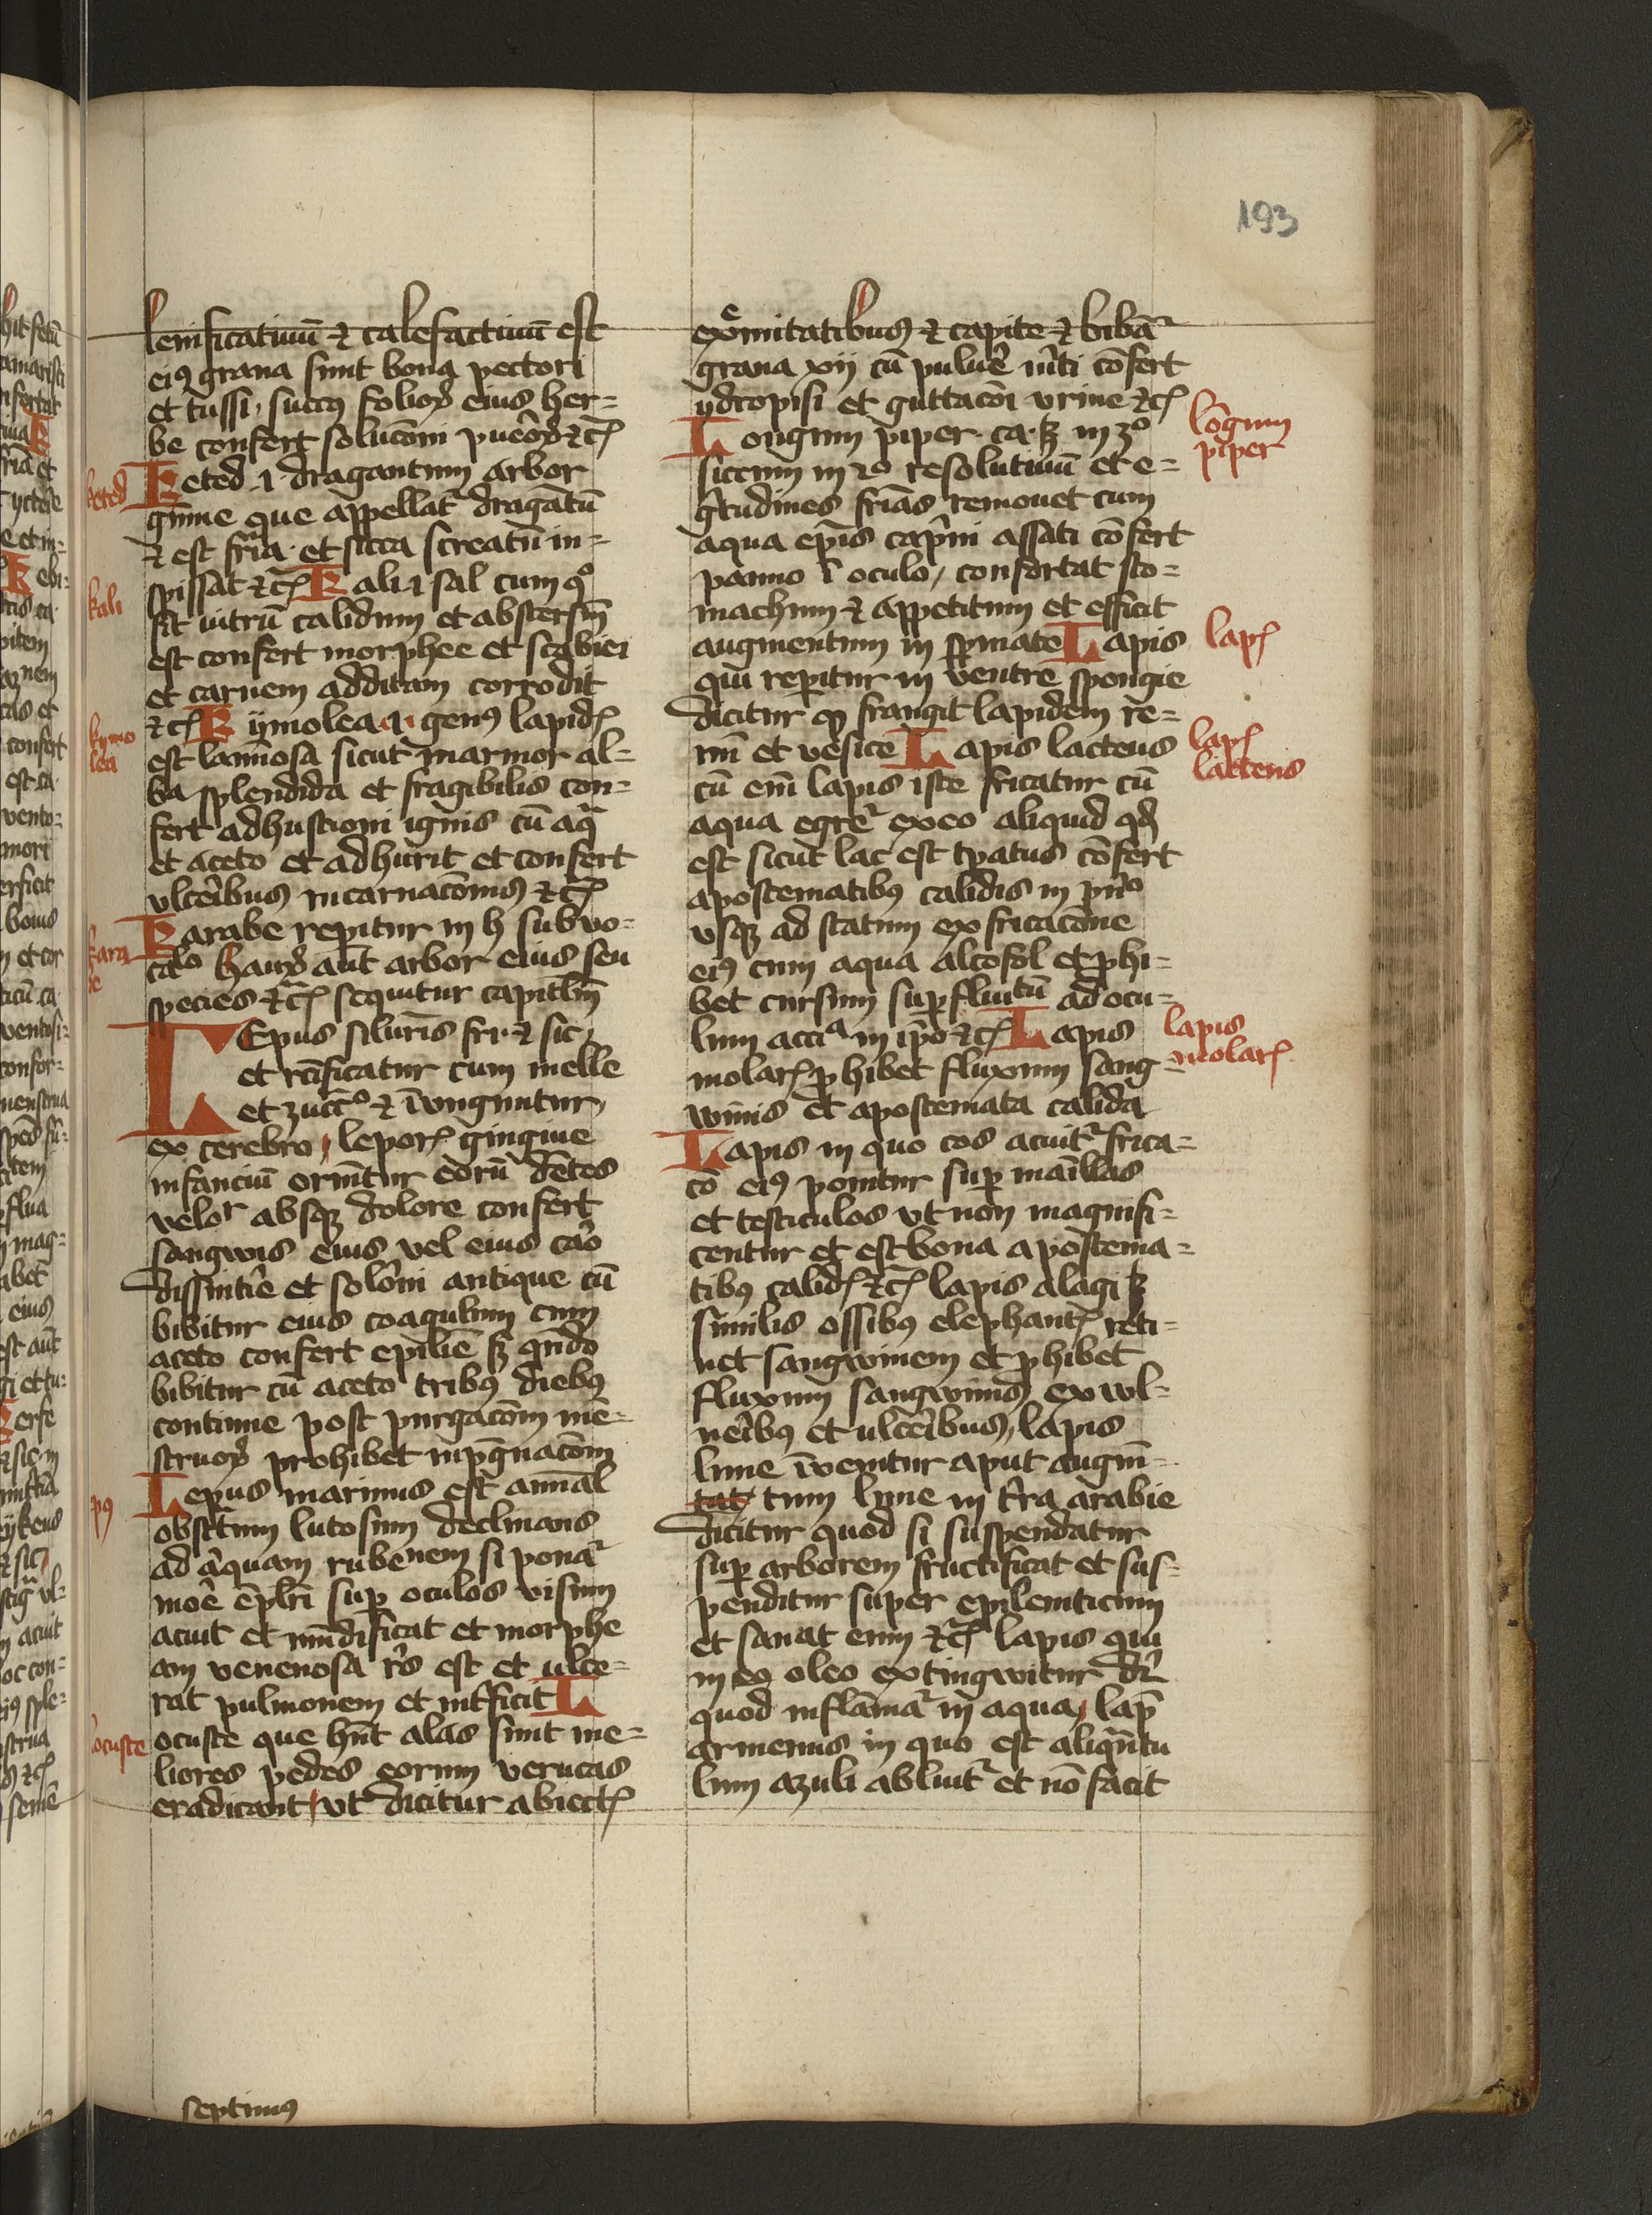 193
lenificatiuū ⁊ calefactiuū est
eiꝯ grana sunt bona pectori
et tussi, succꝯ folioꝝ eius her=
be confert solucōni pueroꝝ ⁊cꝭ
keted
Keted .i. dragantum arbor
gume que appellat̉ dragātū
⁊ est fria. et sicca screatū in=
spissat ⁊cꝭ Kali .i. sal cum qͦ
kali
fit uitrū calidum et abstersm̄
est confert morphee et scabiei
et carnem additam corrodit
⁊cꝭ Kymolea .i. genꝯ lapidꝭ
kymo
lea
est laminosa sicut marmor al=
ba splendida et fragibilis con=
fert adhustioni ignis cū aqͣ
et aceto et adhurit et confert
vlceribus incarnacōnis ⁊cꝭ
Karabe repitur in h sub vo=
kara
be
calo hauꝝ aūt arbor eius seu
species ⁊cꝭ sequitur capitlm̄
LEpus siluris fri. ⁊ sic,
et rcīficatur cum melle
et zuccͦ ⁊ īungnuntur,
ex cerebro, leporꝭ gingiue
infanciū oriūtur eorū dētes
velor absqꝫ dolore confert
sangwis eius vel eius caō
dissintīe et solōni antique cū
bibitur eius coagulum cum
aceto confert epiliē sꝫ qn̄do
bibitur cū aceto tribꝯ diebꝯ
continue post purgacōm mē=
struoꝝ prohibet inpgnacōm
pꝯ
Lepus marinus est anial
obscrum lutosum declinans
ad aquam rubenem si ponat̉
moē ēplri sup oculos visum
acuit et mūdificat et morphe
am venenosa rs est et ulce=
rat pulmonem et intficit L
locuste
ocuste que hn̄t alas sunt me=
liores pedes eorum verucas
eradicant, vt dicitur abiectꝭ
septimus
exͤmitatibus ⁊ capite ⁊ bibāt̉
grana xij cū puluē mti cōfert
ydropisi et guttacōi vrine ⁊cꝭ
lōgum
piper
Longum piper. ca. ꝫ in 3ͦ
siccum in 2ͦ resolutiuū et e=
gtudines frias remouet cum
aqua epis capni assati cōfert
panno ī oculo, confortat sto=
machum ⁊ appetitum et efficit
augmentum in spmate Lapis
lapꝭ
qui repitur in ventre spongie
dicitur qꝫ frangit lapidem re=
nū et vesice Lapis lacteus
lapꝭ
lacteus
cū em̄ lapis iste fricatur cū
aqua egrēt̉ ex eo aliquid qd
est sicut lac est tpatus cōfert
apostematibꝯ calidis in pnͦ
vsqꝫ ad statum ex fricacōne
eiꝯ cum aqua alcofol et phi=
bet cursum supfluitū ad ocu=
lum acciͣ in ipͦ ⁊cꝭ Lapis
lapis
molarꝭ
molarꝭ phibet fluxum sang=
winis et apostemata calida
Lapis in quo cos acuit̉ frica=
cō eiꝯ ponitur sup māillas
et testiculos vt non magnifi=
centur et est bona apostema=
tibꝯ calidꝭ ⁊cꝭ lapis alagi ꝫ
similis ossibꝯ elephantꝭ reti=
net sangwinem et phibet
fluxum sangwinis ex wl=
neribꝯ et ulceribus, lapis
lune īvenitur aput augm̄=
tat tum lune in tra arabie
dicitur quod si suspendatur
sup arborem fructificat et sus=
penditur super epilenticum
et sanat eum ⁊cꝭ lapis qui
in eo oleo extingwitur dr̄
quod inflāmat̉ in aqua, lap̄
armenus in quo est aliqͣntu
lum azuli abluit̉ et nō facit